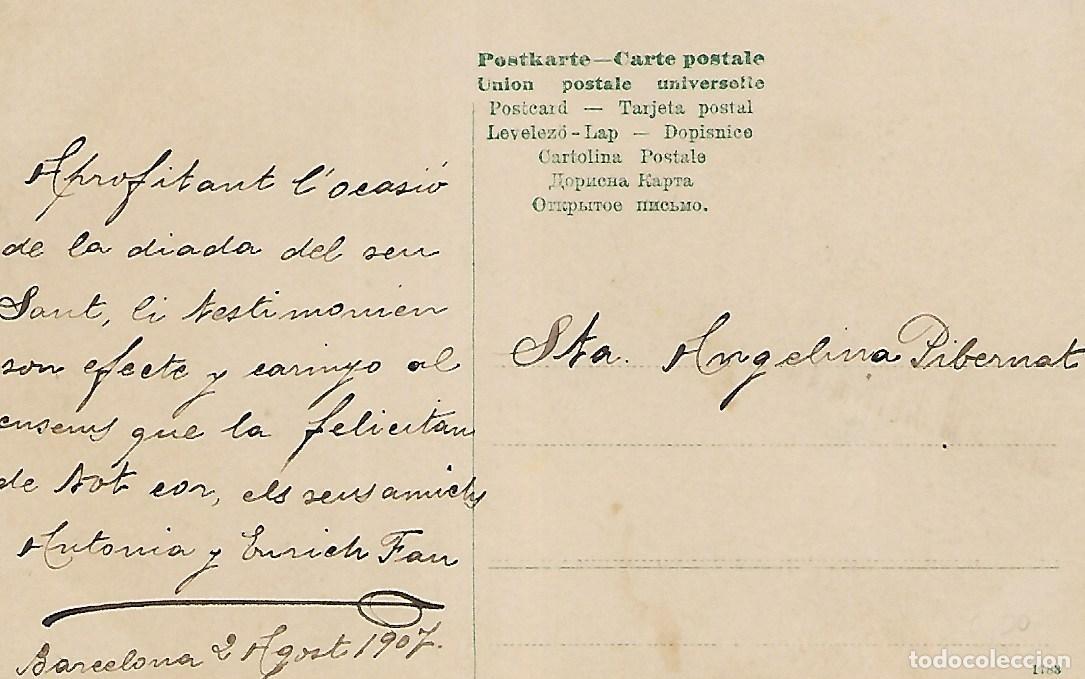 Postkarte—Carte postale
Union postale universelle
Postcard — Tarjeta postal
Levelező-Lap — Dopisnice
Cartolina Postale
Дописна Карта
Открытое письмо.
Aprofitant l'ocasió
de la diada del seu
Sant, li testimonien
son efecte y carinyo al
ensems que la felicitan
de tot cor, els seus amichs
Antonia y Enrich Fau
Barcelona 2 Agost 1907.
Sta. Angelina Pibernat
1183
todocoleccion